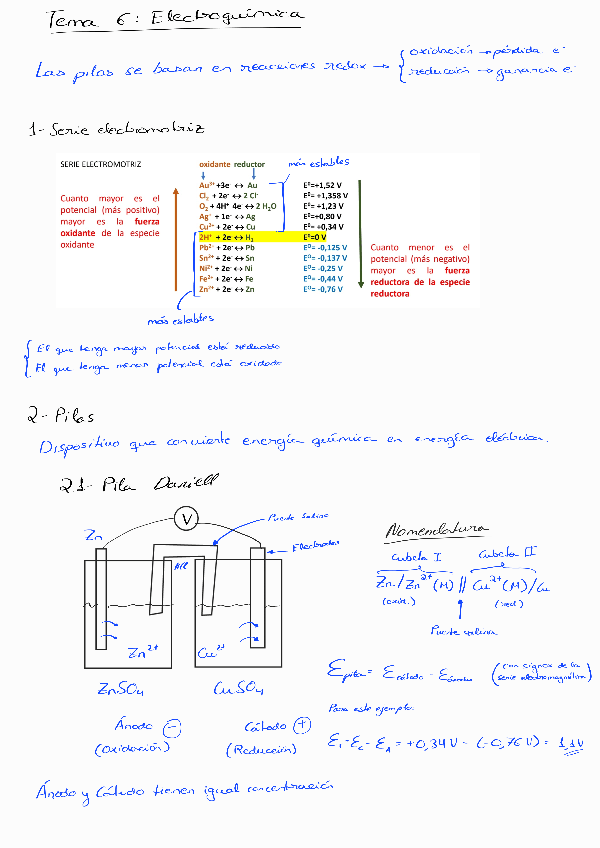 Tema 6: Electroquímica
Las pilas se basan en reacciones redox → { oxidación → pérdida e⁻
reducción → ganancia e⁻
1- Serie electromotriz
SERIE ELECTROMOTRIZ
oxidante reductor
más estables
Cuanto mayor es el
potencial (más positivo)
mayor es la fuerza
oxidante de la especie
oxidante
Au³⁺ +3e⁻ ↔ Au E⁰=+1,52 V
Cl₂ + 2e⁻ ↔ 2 Cl⁻ E⁰= +1,358 V
O₂ + 4H⁺ 4e ↔ 2 H₂O E⁰= +1,23 V
Ag⁺ + 1e⁻ ↔ Ag E⁰=+0,80 V
Cu²⁺ + 2e⁻ ↔ Cu E⁰= +0,34 V
2H⁺ + 2e ↔ H₂ E⁰=0 V
Pb²⁺ + 2e ↔ Pb E⁰= -0,125 V
Sn²⁺ + 2e ↔ Sn E⁰= -0,137 V
Ni²⁺ + 2e ↔ Ni E⁰= -0,25 V
Fe²⁺ + 2e ↔ Fe E⁰= -0,44 V
Zn²⁺ + 2e ↔ Zn E⁰= -0,76 V
Cuanto menor es el
potencial (más negativo)
mayor es la fuerza
reductora de la especie
reductora
más estables
El que tenga mayor potencial está reducido
El que tenga menor potencial está oxidado
2- Pilas
Dispositivo que convierte energía química en energía eléctrica.
2.1- Pila Daniell
Zn
V
Puente salino
Electrodos
Zn²⁺
Cu²⁺
ZnSO₄
CuSO₄
Ánodo ⊖
Cátodo ⊕
(Oxidación)
(Reducción)
Nomenclatura
Cubeta I
Cubeta II
Zn/Zn²⁺(M) // Cu²⁺(M)/Cu
(oxid.)
(red)
Puente salino
Epila = Ecátodo - Eánodo (con signos de la
serie electromagnética)
Para este ejemplo:
E₁ = E_C - E_A = +0,34 V - (-0,76 V) = 1,1V
Ánodo y Cátodo tienen igual concentración